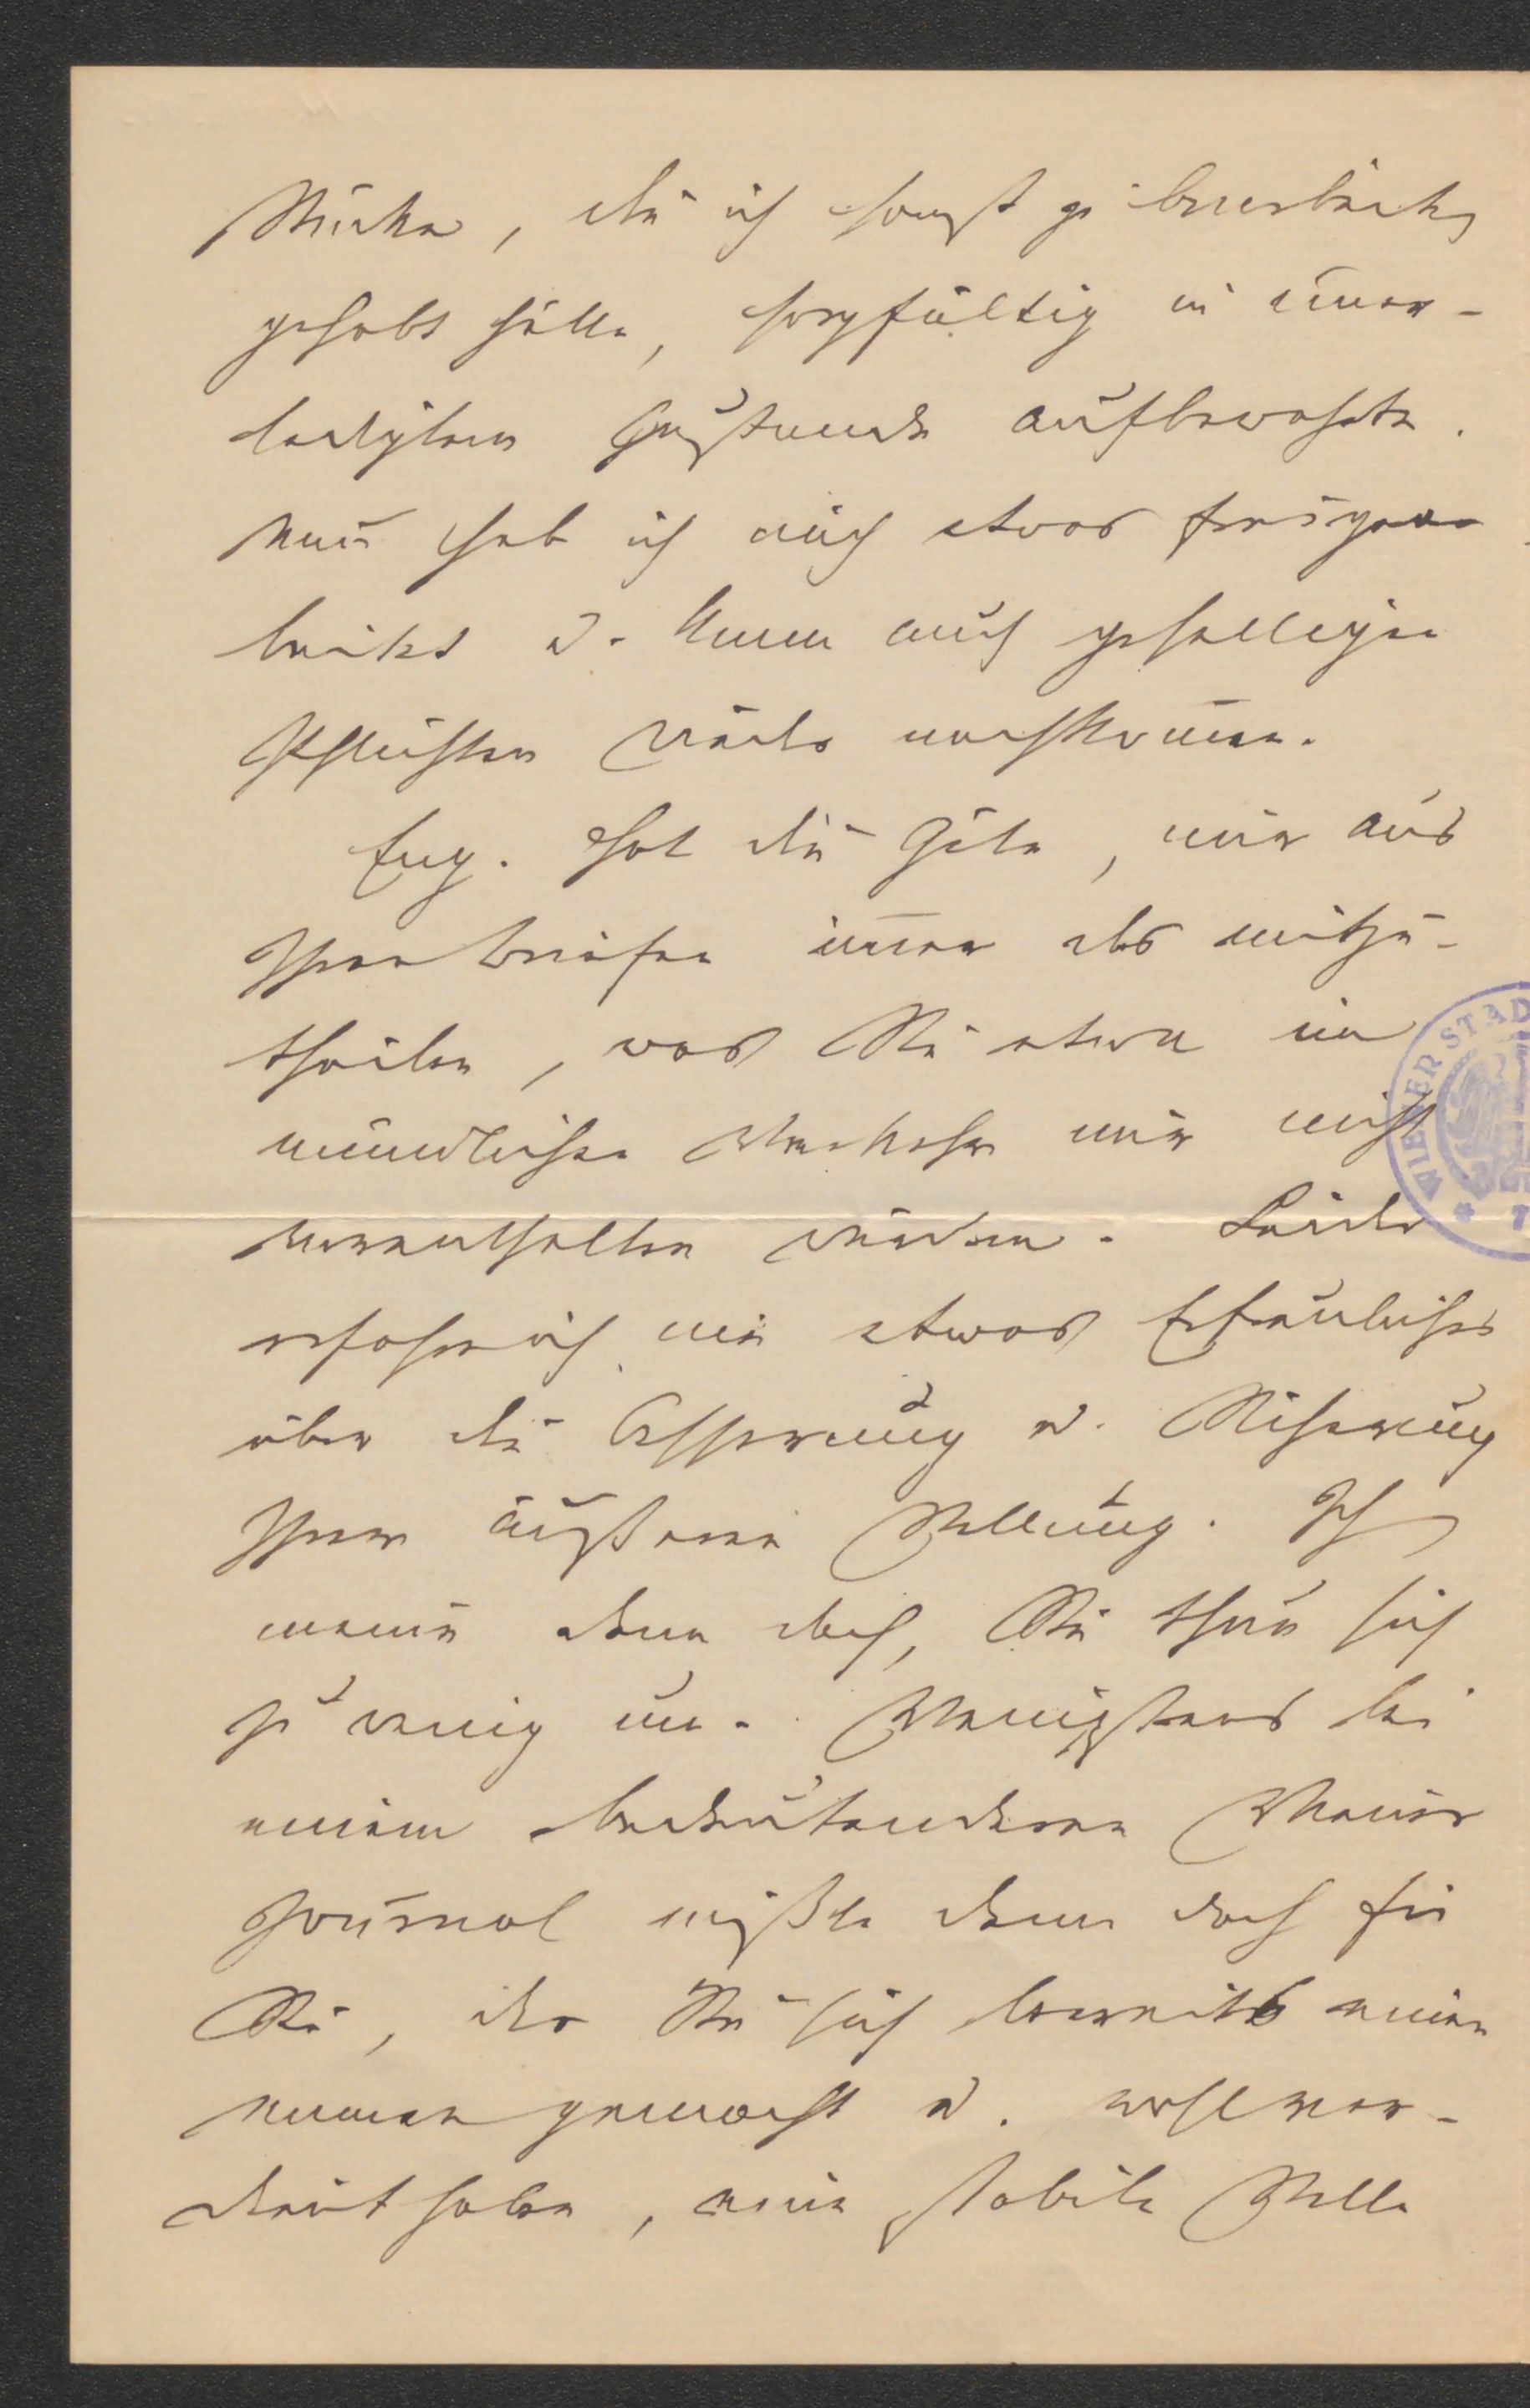 Stücke, die ich sonst zu bearbeiten
gehabt hätte, sorgfältig in uner-
ledigtem Zustande aufbewahrte.
Nun hab ich mich etwas frei gear-
beitet u. kann auch geselligen
Pflichten wieder nachkommen.
Eug. hat die Güte, mir aus
Ihren Briefen immer das mitzu-
theilen, was Sie etwa im
mündlichen Verkehr mir nicht
vorenthalten würden. Leider
erfahre ich nie etwas Erfreuliches
über die Besserung u. Sicherung
Ihrer äußeren Stellung. Ich
meine denn doch, Sie thun sich
zu wenig um. Wenigstens bei
einem bedeutenderen Wiener
Journal müßte denn doch für
Sie, der Sie sich bereits einen
Namen gemacht u. wohlver-
dient haben, eine stabile Stelle
WIENER STAD